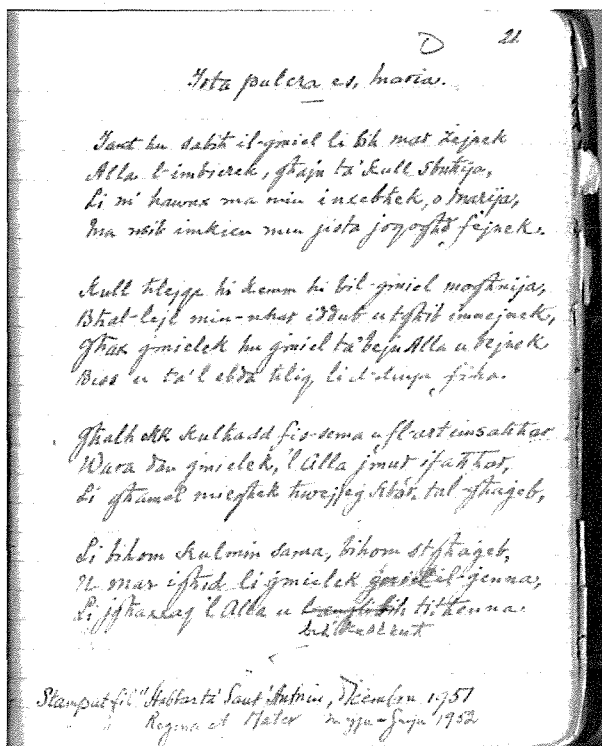 21
Tota pulcra es, Maria.
Tant hu sabiħ il-ġmiel li bih mar żejnek
Alla l-imbierek, għajn ta' kull sbuħija,
Li m' hawnx ma min inxebhek, o Marija,
Ma nsib imkien min jista joqogħod fejnek.
Kull ħlejqa hi kemm hi bil-ġmiel mogħnija,
Bħal-lejl min-nhar iddub u tgħib
Għax ġmielek hu ġmiel ta' bejn Alla u bejnek
Biss u ta' l ebda ħliqa, li d-dinja fiha.
Għalhekk kulħadd fis-sema u fl-art imsaħħar
Wara dan ġmielek, 'l Alla jmur ifaħħar,
Li għamel miegħek ħwejjeġ kbar, tal-għaġeb,
Li bihom kulmin sama, bihom stgħaġeb,
U mar igħid li ġmielek il-ġenna,
Li jgħaxxaq 'l Alla u bih titħenna.
Stampat fil "Ħabbar ta' Sant' Antnin, Diċembru 1951
" Regina et Mater Mejju-Ġunju 1952